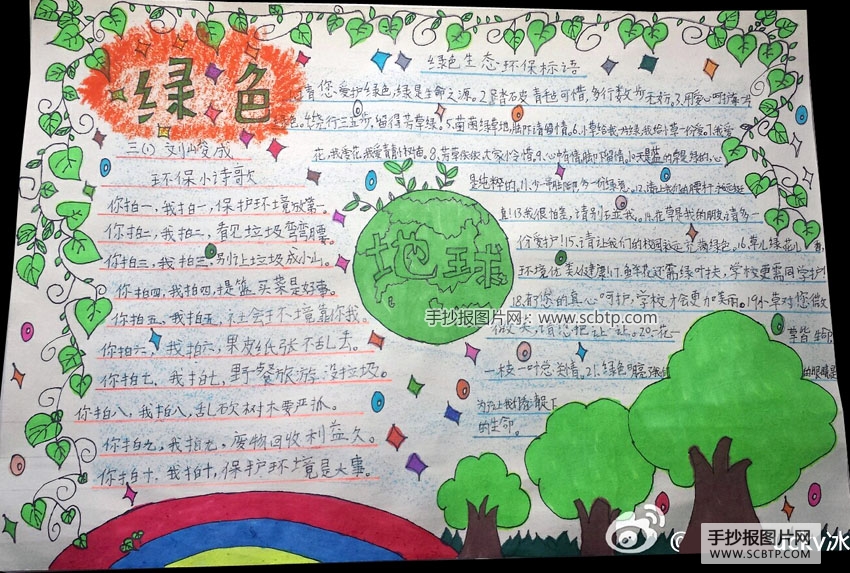 绿色
三(1) 刘峻成
环保小诗歌
你拍一,我拍一,保护环境放第一。
你拍二,我拍二,看见垃圾弯弯腰。
你拍三,我拍三,别让垃圾成小山。
你拍四,我拍四,提篮买菜是好事。
你拍五,我拍五,社会环境靠你我。
你拍六,我拍六,果皮纸张不乱丢。
你拍七,我拍七,野餐旅游没垃圾。
你拍八,我拍八,乱砍树木要严抓。
你拍九,我拍九,废物回收利益久。
你拍十,我拍十,保护环境是大事。
地球
绿色生态环保标语
您爱护绿色,绿是生命之源。2.踏破青毡可惜,多行数步无妨。3.用爱心呵护
色。4.绕行三五步,留得芳草绿。5.茵茵绿草地,脚下请留情。6.小草给我一片绿,我给小草一份爱。7.我爱
花,我爱花,我爱青青竹篱笆。8.芳草依依,大家怜惜。9.心中有情,脚下留情。10.天是蓝的,草是绿的,心
是纯粹的。11.少一串脚印,多一份绿意。12.请
真!13.我很怕羞,请别
14.花草是我的朋友,请多一
份爱护!15.让我们的校园永远充满绿色。16.草儿绿,花儿香,
环境优美
健康!17.鱼车花还需绿叶扶,学校更需同学护!
18.有了您的真心呵护,学校才会更加美丽。19.小草对您微微
做笑,请您把让让。20.一花一
草皆生命,
一枝一叶总关情。21.绿色
的眼睛是
为
的生命。
手抄报图片网:www.scbtp.com
手抄报图片网
WWW.SCBTP.COM